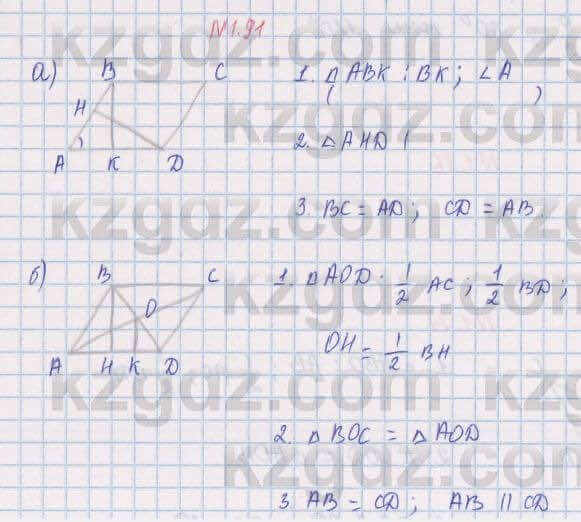 N1.91
а)
B C
H
A K D
1. △ ABK : BK; ∠A
( )
2. △ AHD
3. BC = AD; CD = AB.
б)
B C
O
A H K D
1. △AOD. 1/2 AC; 1/2 BD;
OH = 1/2 BH
2. △ BOC = △ AOD
3. AB = CD; AB || CD
kzgdz.com kzgdz.com
kzgdz.com kzgdz.com
kzgdz.com kzgdz.com
kzgdz.com kzgdz.com